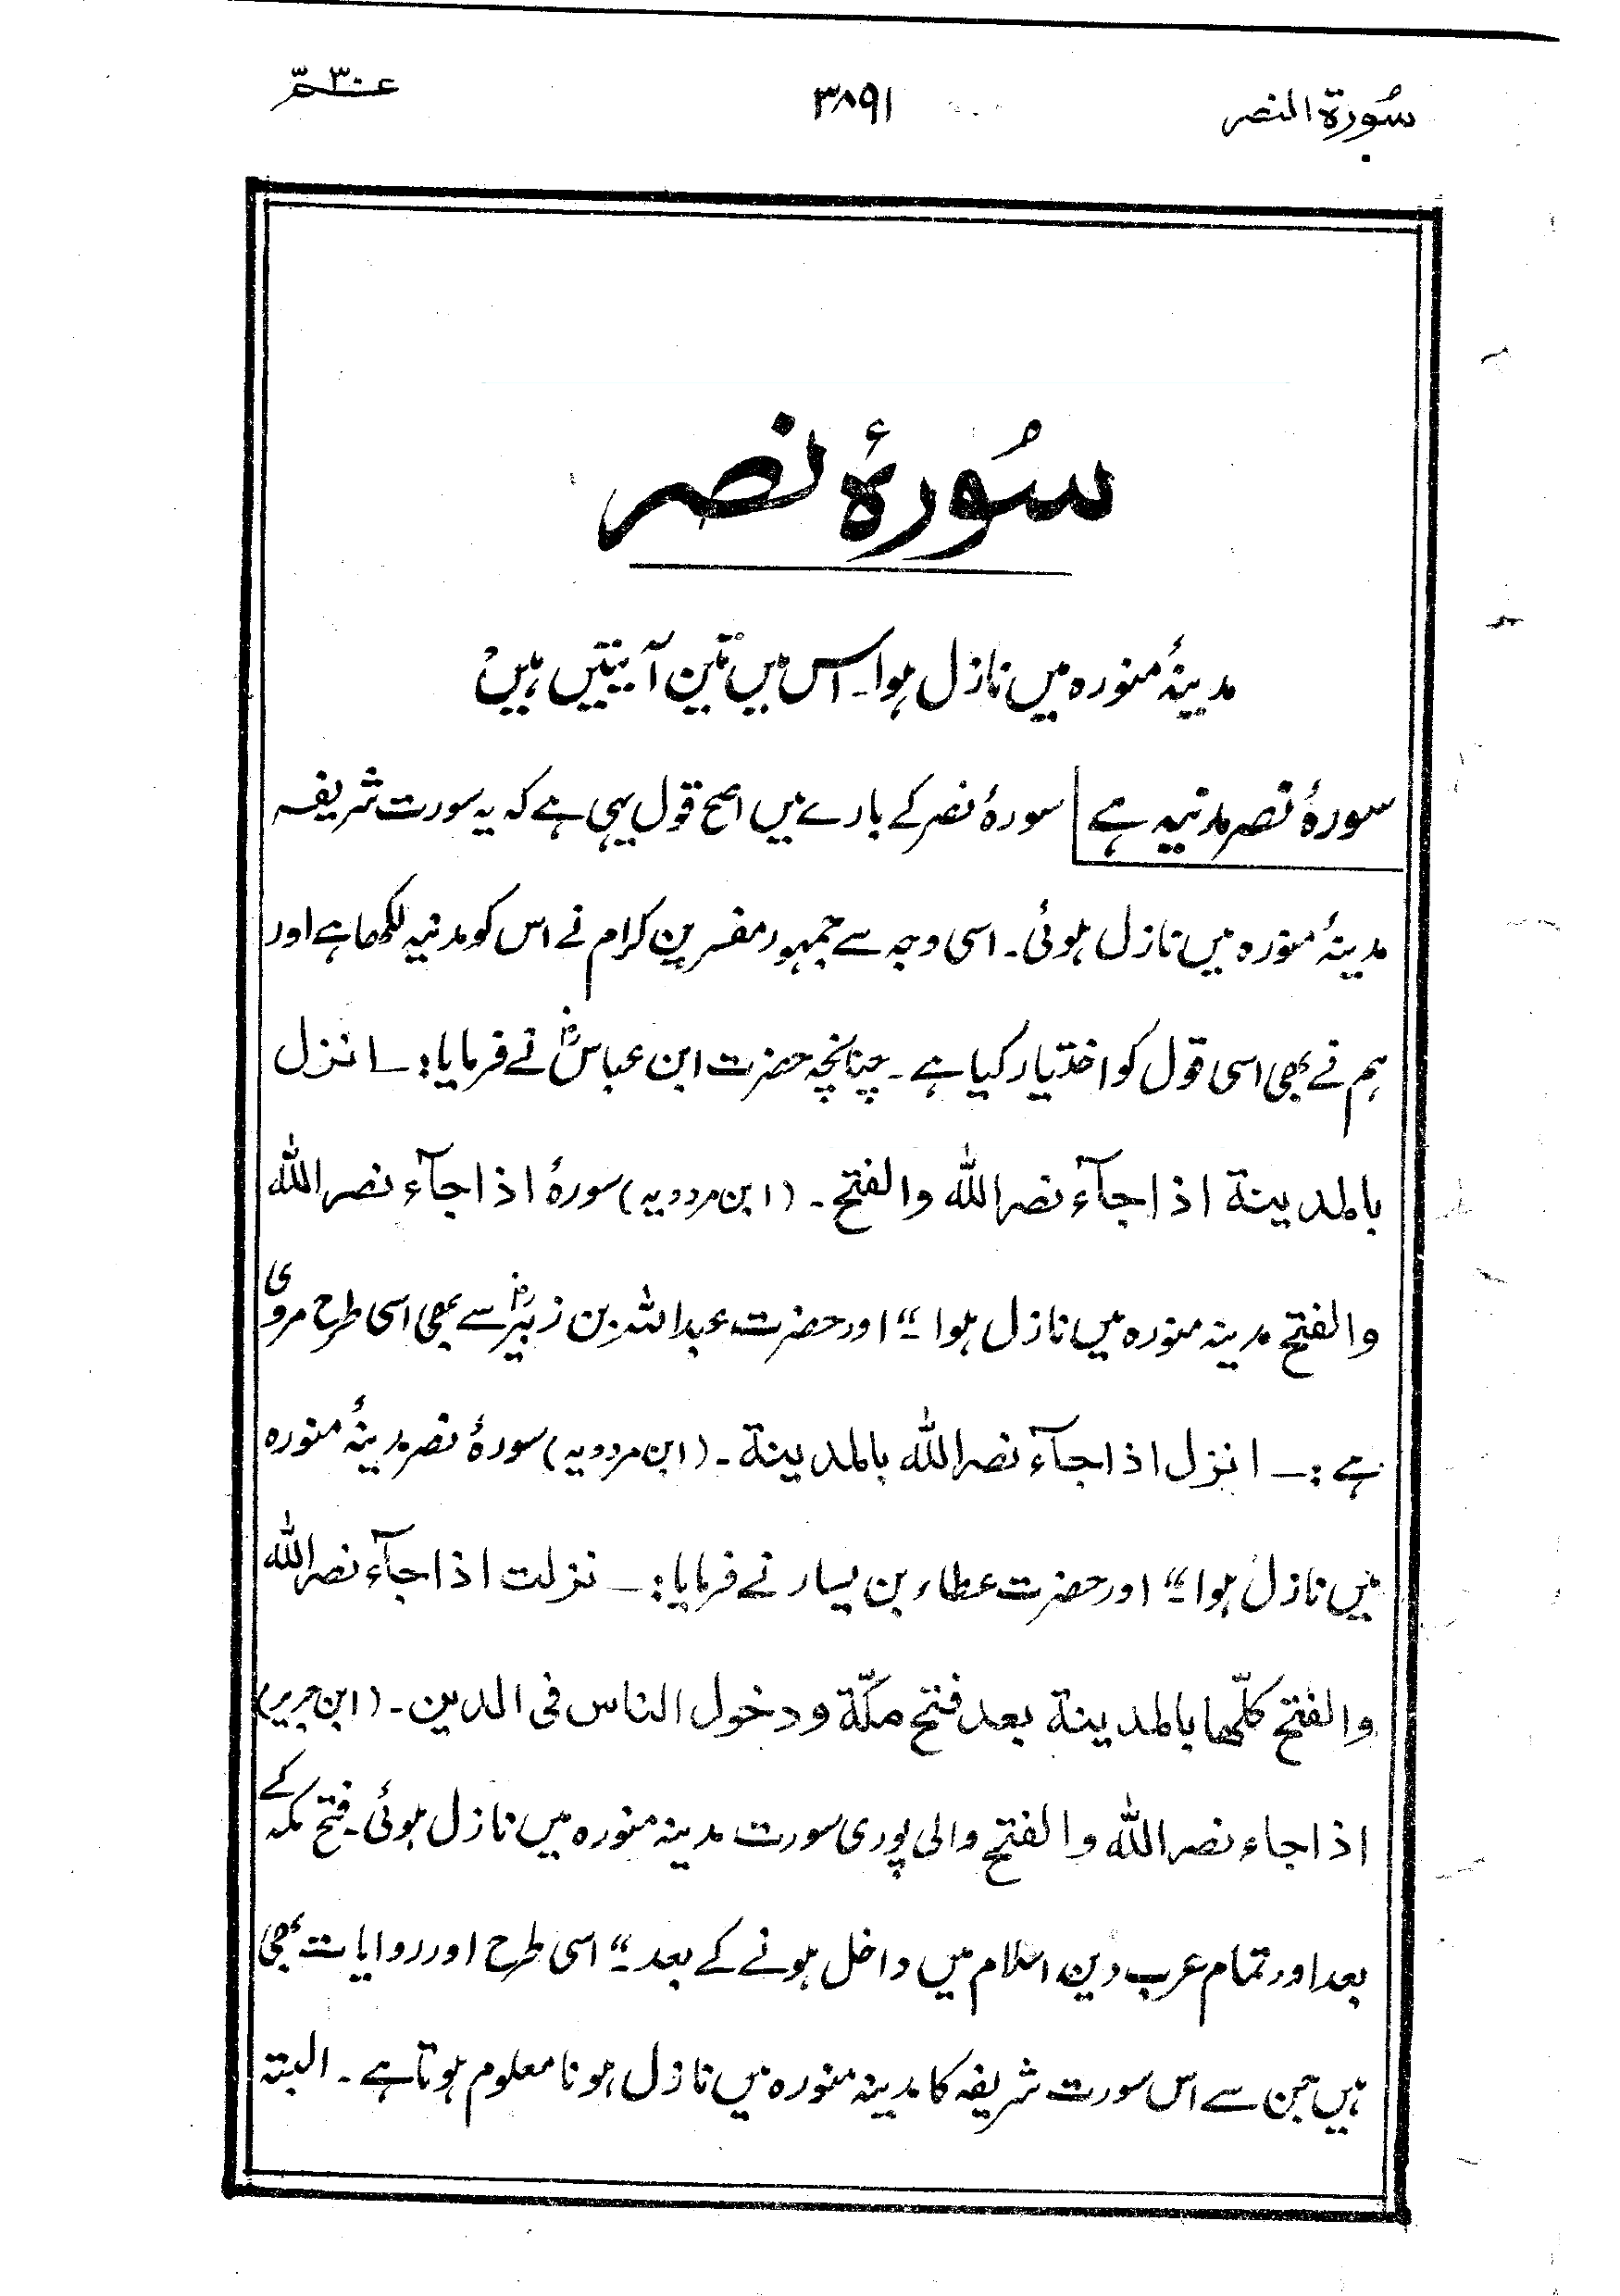 سُورۃ النصر ۳۸۹۱ عمّ ۳۰
سُورۂ نصر
مدینۂ منورہ میں نازل ہوا۔ اس میں تین آیتیں ہیں
سورۂ نصر مدنیہ ہے سورۂ نصر کے بارے میں اصح قول یہی ہے کہ یہ سورت شریفہ
مدینۂ منورہ میں نازل ہوئی۔ اسی وجہ سے جمہور مفسرین کرام نے اس کو مدنیہ لکھا ہے اور
ہم نے بھی اسی قول کو اختیار کیا ہے۔ چنانچہ حضرت ابن عباسؓ نے فرمایا:ـ انزل
بالمدینة اذا جآء نصر اللہ والفتح۔ (ابن مردویہ) سورۂ اذا جآء نصر اللہ
والفتح مدینہ منورہ میں نازل ہوا۔“ اور حضرت عبد اللہ بن زبیرؓ سے بھی اسی طرح مروی
ہے:ـ انزل اذا جآء نصر اللہ بالمدینة۔ (ابن مردویہ) سورۂ نصر مدینۂ منورہ
میں نازل ہوا۔“ اور حضرت عطاء بن یسار نے فرمایا:ـ نزلت اذا جآء نصر اللہ
والفتح کلّها بالمدینة بعد فتح مکّة و دخول الناس فی الدین۔ (ابن جریر)
اذا جاء نصر اللہ والفتح والی پوری سورت مدینہ منورہ میں نازل ہوئی۔ فتح مکہ کے
بعد اور تمام عرب دین اسلام میں داخل ہونے کے بعد۔“ اسی طرح اور روایات بھی
ہیں جن سے اس سورت شریفہ کا مدینہ منورہ میں نازل ہونا معلوم ہوتا ہے۔ البتہ